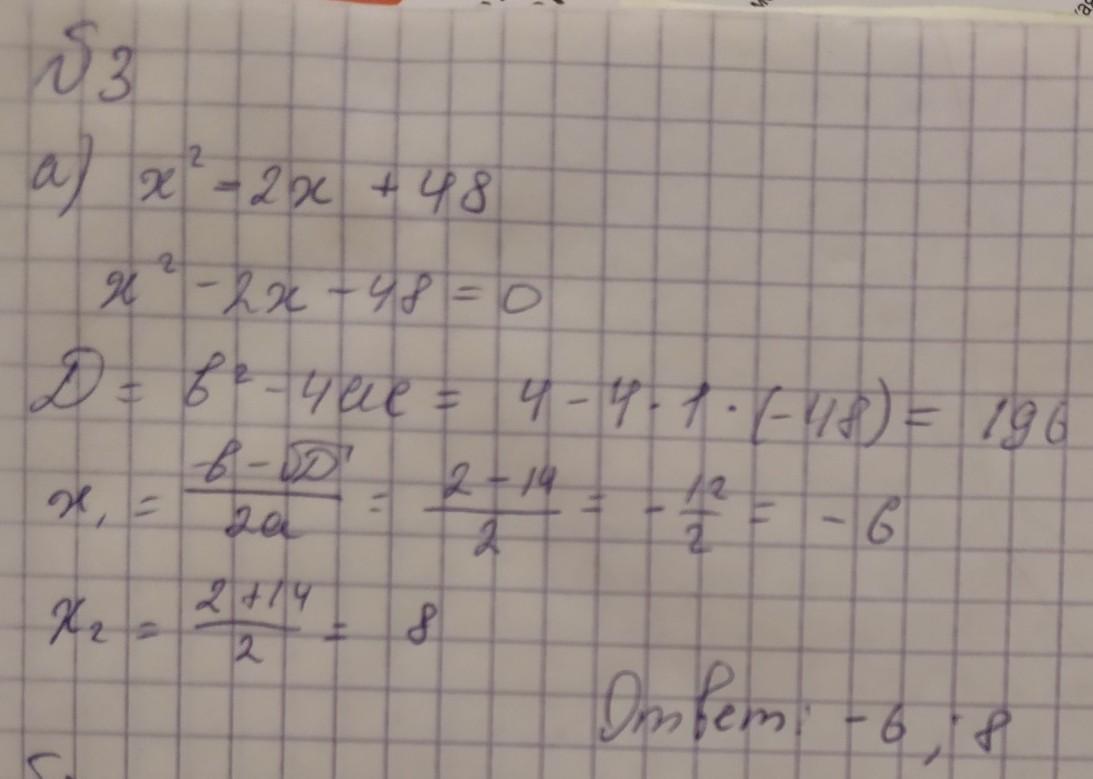 №3
а) x² - 2x + 48
x² - 2x - 48 = 0
D = b² - 4ac = 4 - 4 · 1 · (-48) = 196
x₁ = (-b - √D)/2a = (2 - 14)/2 = -12/2 = -6
x₂ = (2 + 14)/2 = 8
Ответ: -6 ; 8